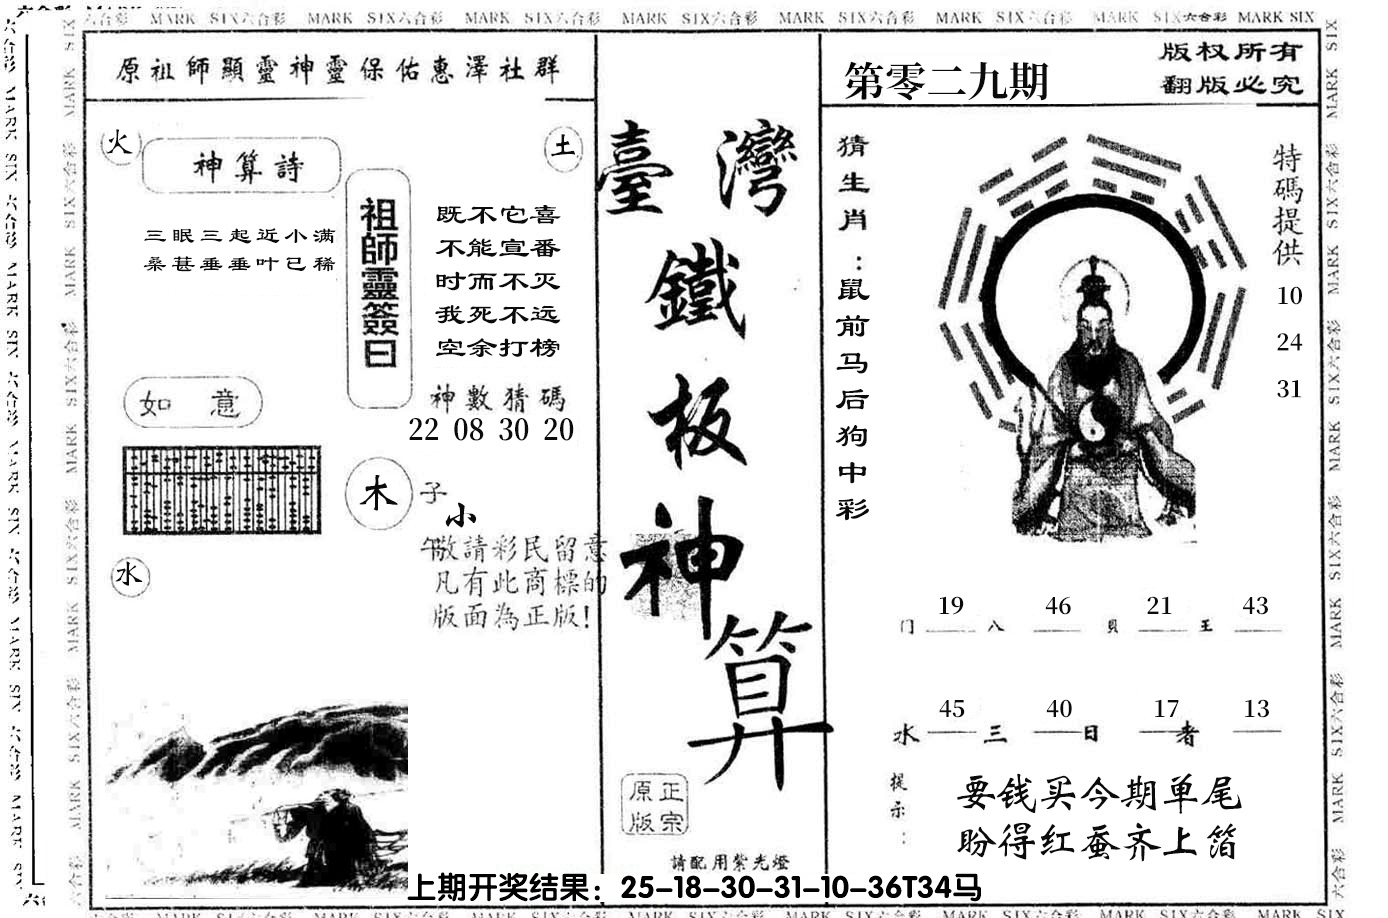 六合彩 MARK SIX六合彩 MARK SIX六合彩 MARK SIX六合彩 MARK SIX六合彩 MARK SIX六合彩 MARK SIX六合彩 MARK SIX六合彩 MARK SIX
原祖師顯靈神靈保佑惠澤社群
火
神算詩
土
三眠三起近小满
桑甚垂垂叶已稀
祖師靈簽曰
既不它喜
不能宣番
时而不灭
我死不远
空余打榜
神數猜碼
22 08 30 20
如 意
木
子
小
午
敬請彩民留意
凡有此商標的
版面為正版!
水
臺灣
鐵
板
神
算
正宗
原版
請配用紫光燈
第零二九期
版权所有
翻版必究
猜生肖:鼠前马后狗中彩
特碼提供
10
24
31
19 46 21 43
门 八 貝 王
45 40 17 13
水 三 日 者
提示:
要钱买今期单尾
盼得红蚕齐上箔
上期开奖结果：25-18-30-31-10-36T34马